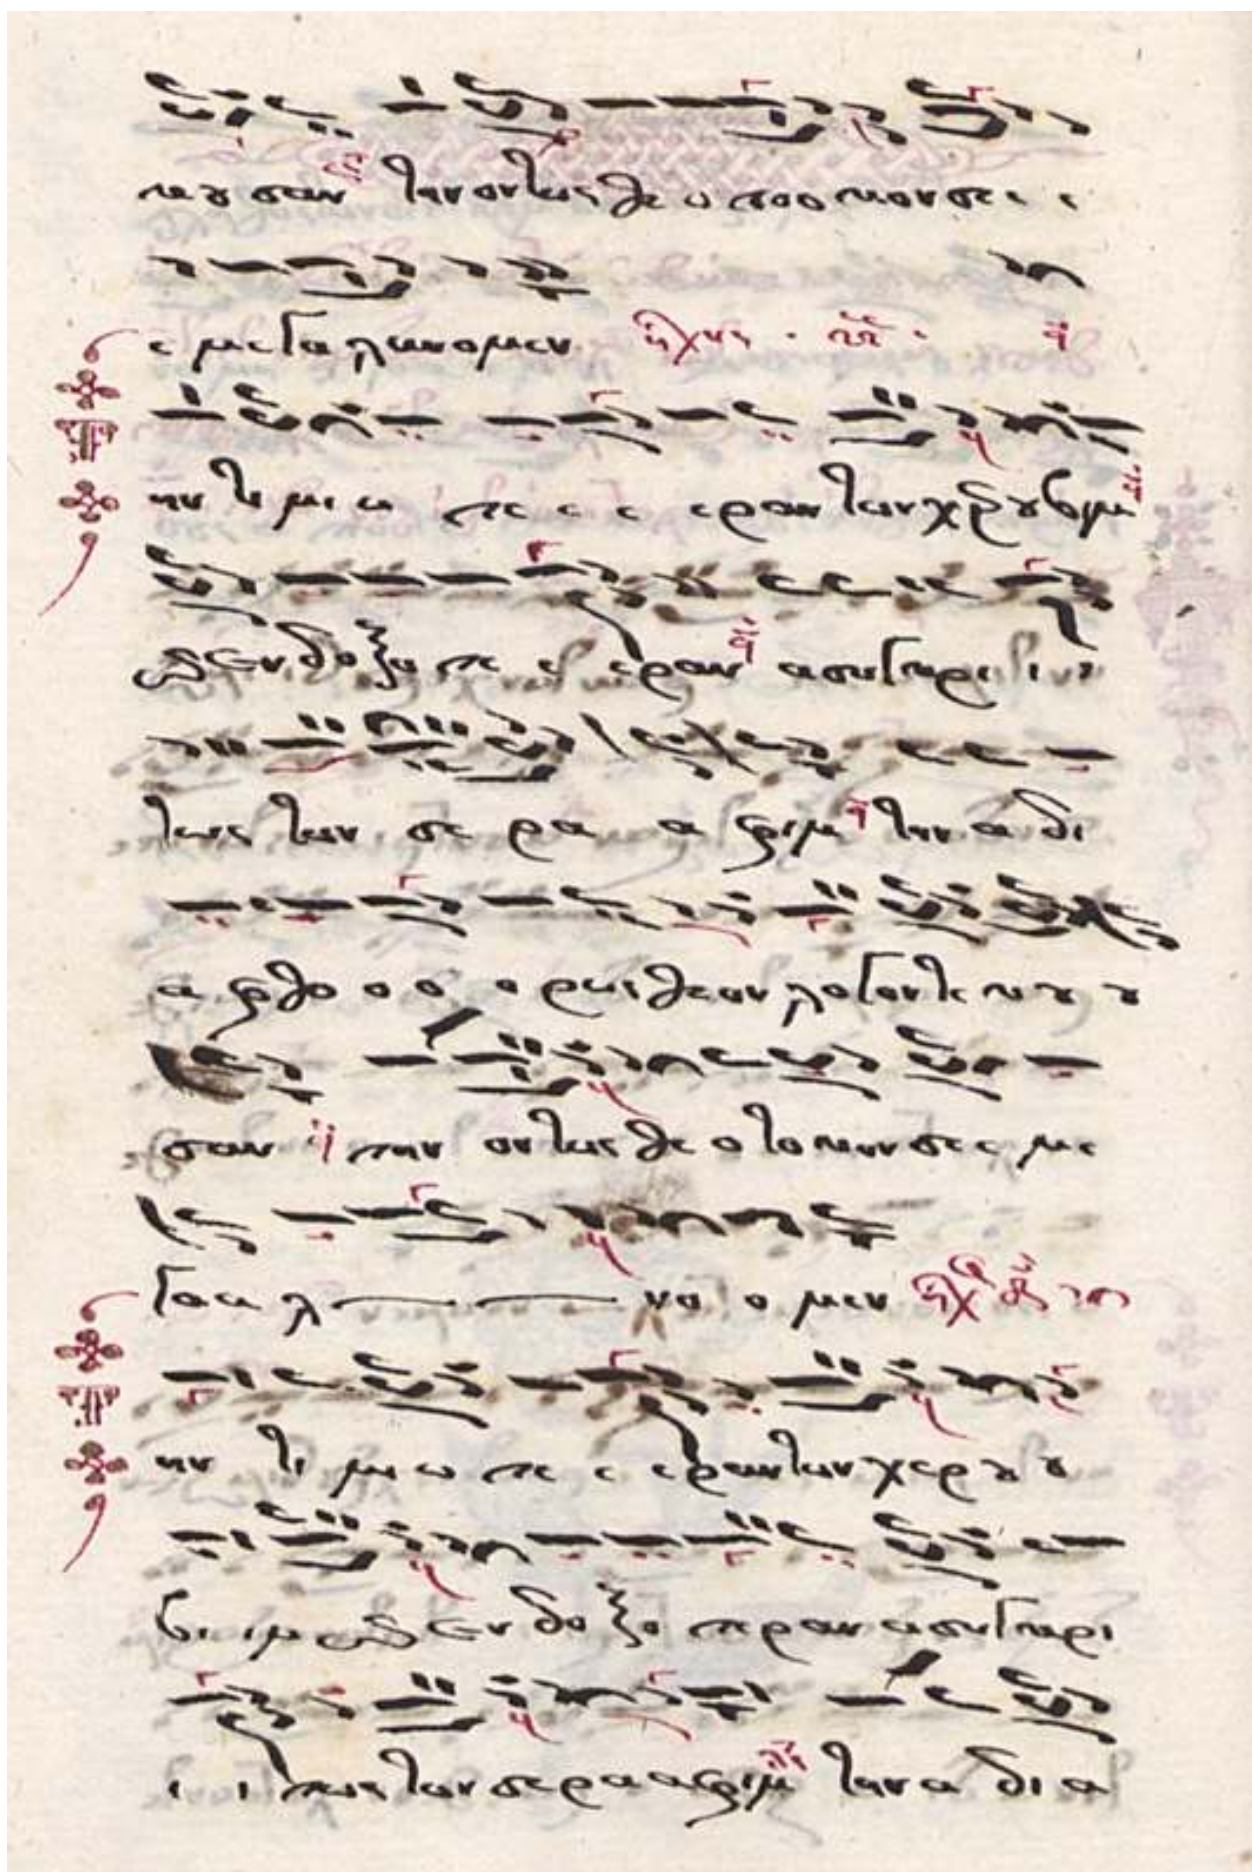 κου σαν την οντως θε ο το ο κον σε ε ε
ε με γα λυνομεν ἦχος
Την τι μι ω τε ε ε ε ραν των χερουβιμ
και ενδοξο τε ε εραν ασυγκρι ι ι
τως των σε ρα α φιμ την α δι
α φθο ο ο ο ρως θεον λογον τε κου ου ου
σαν την οντως θε ο τοκον σε ε με
γα α λυ νο ο μεν ἦχος
Την τι μι ω τε ε εραν των χερου ου
βι ιμ και εν δο ξο τεραν ασυγκρι
ι ι τως των σε ρα α φιμ την α δι α